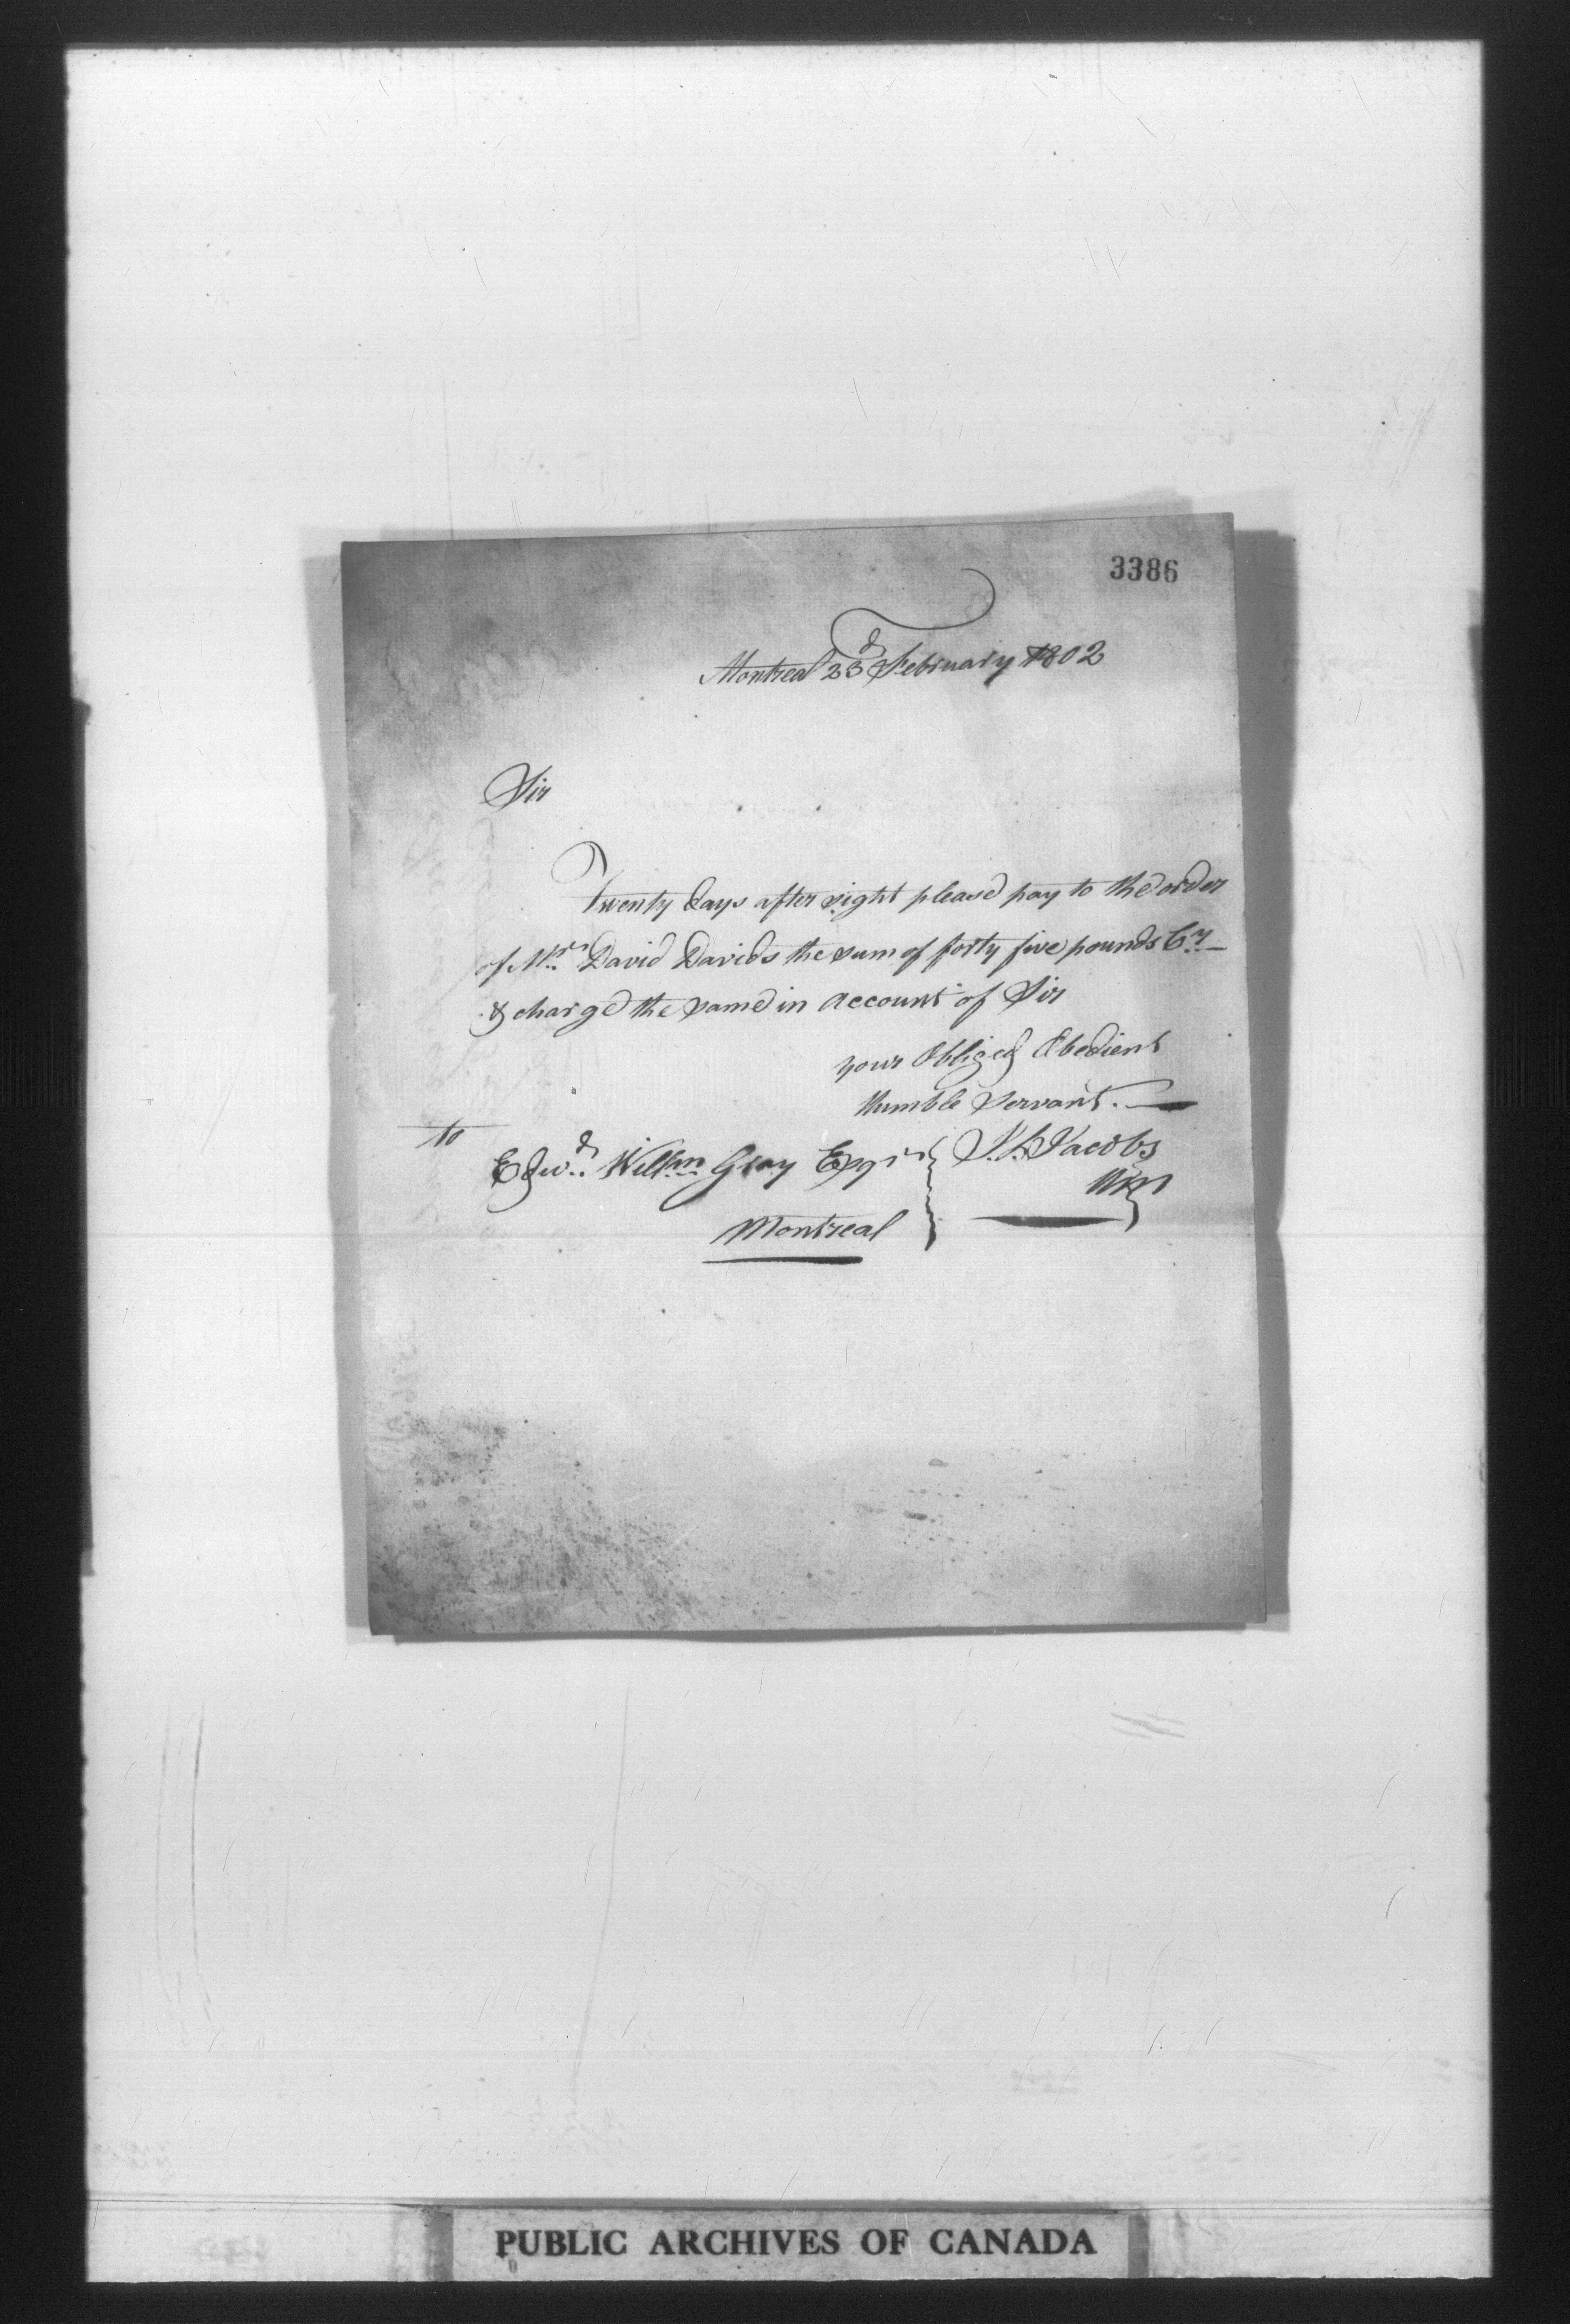 3386
Montreal 23d February 1802
Sir
Twenty days after sight please pay to the order
of Mr. David Davids the sum of forty five pounds Cy
& charge the same in account of Sir
your Obliged Obedient
humble Servant.
to
Edwd. Willm Gray Esqr
Jacobs
Montreal
PUBLIC ARCHIVES OF CANADA